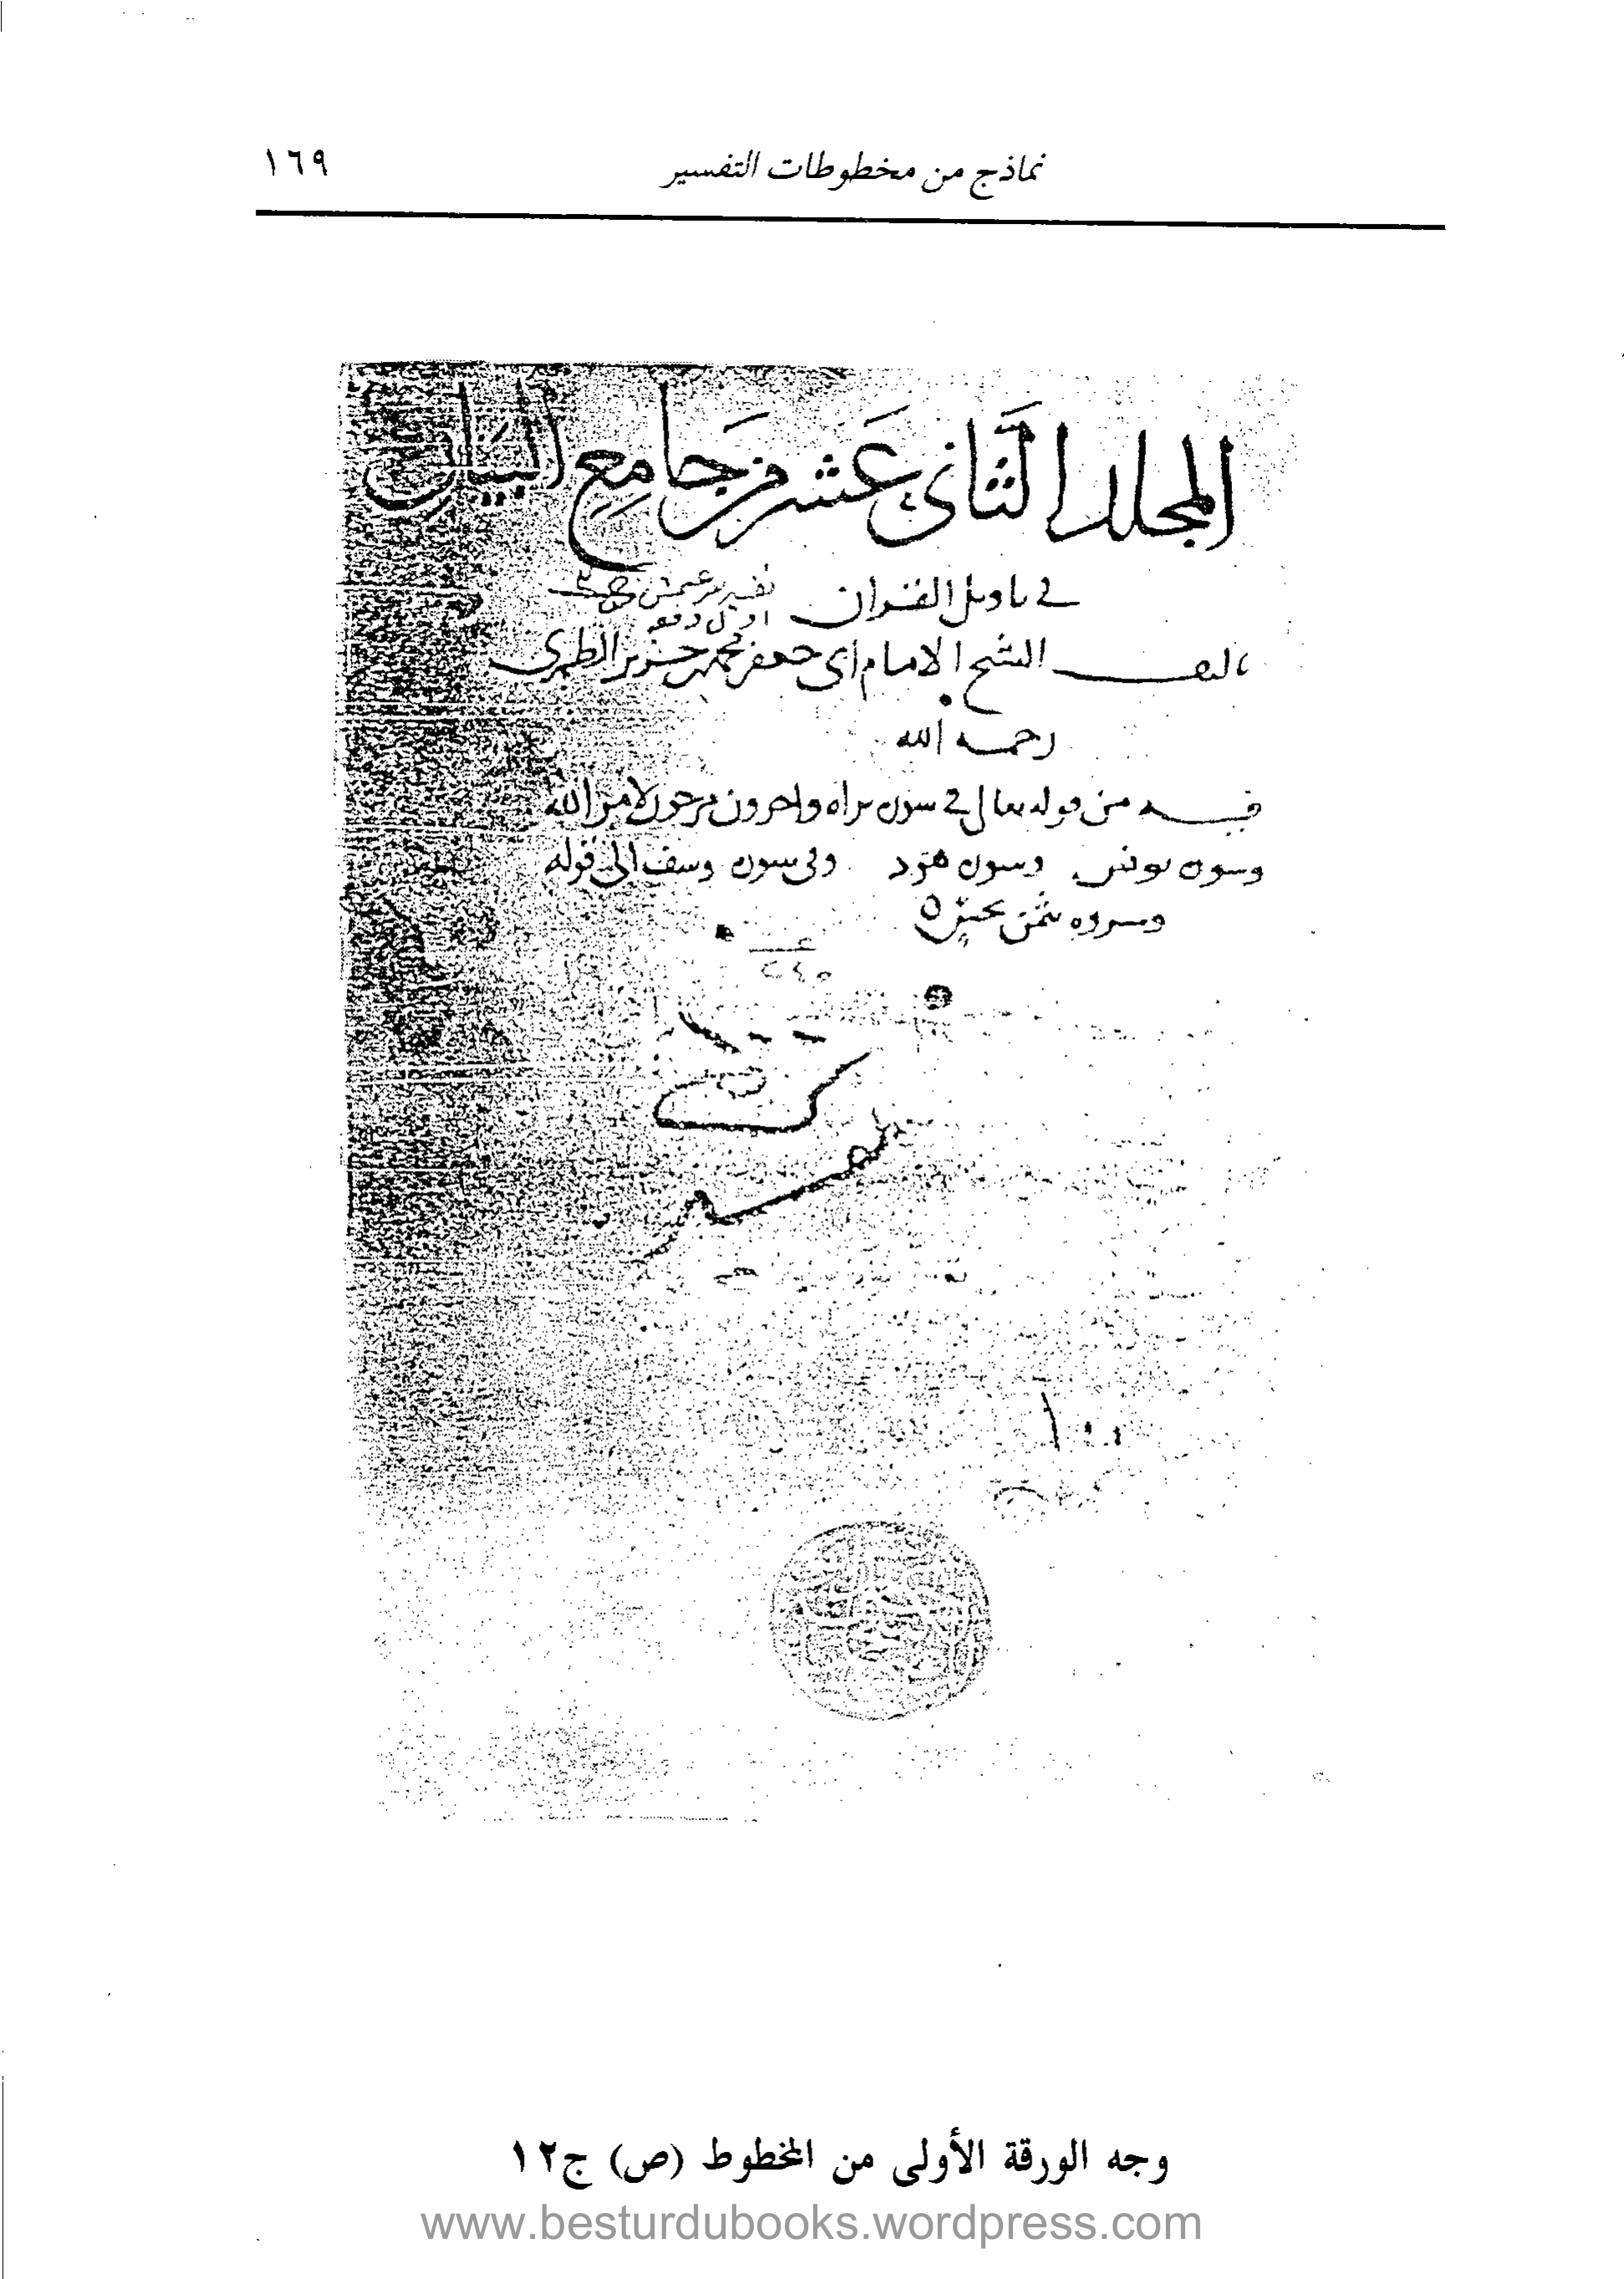 نماذج من مخطوطات التفسير
١٦٩
المجلد الثاني عَشر من جَامِع البَيَان
في تاويل القران
تاليف الشيخ الامام ابى جعفر محمد بن جرير الطبرى
رحمه الله
فيه من قوله تعالى في سورة براه واخرون مرجون لامر الله
وسورة يونس وسورة هود وفى سورة يوسف الى قوله
وسروه بثمن بخس
١٠٠
وجه الورقة الأولى من المخطوط (ص) ج١٢
www.besturdubooks.wordpress.com